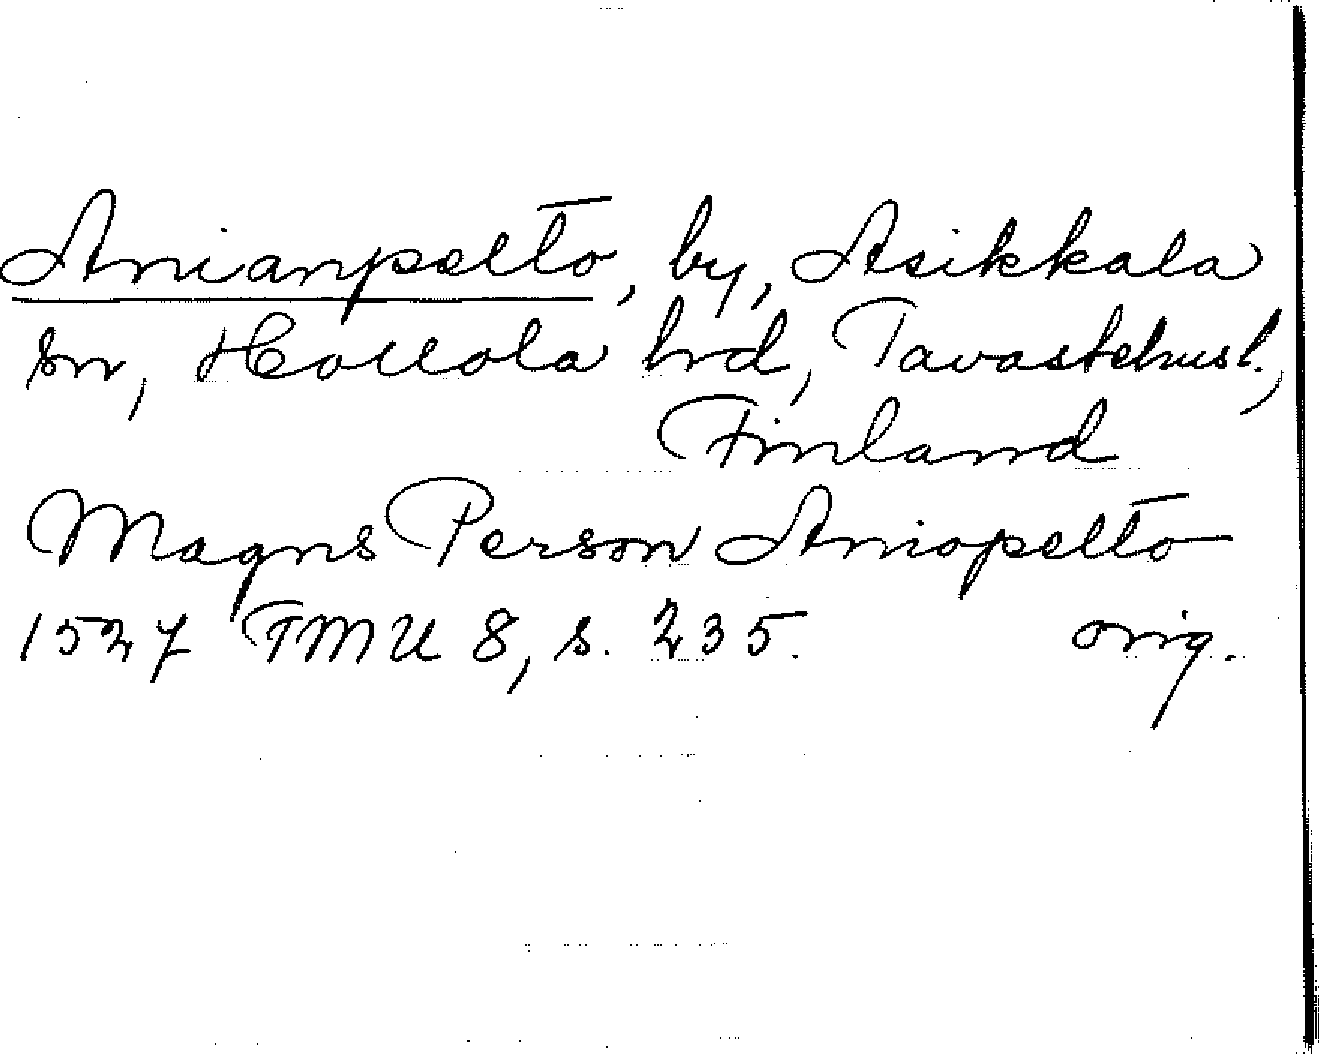 Anianpelto, by, Asikkala
sn, Hollola hrd, Tavastehus l.,
Finland
Magns Person Aniopelto
1527 FMU 8, s. 235. orig.